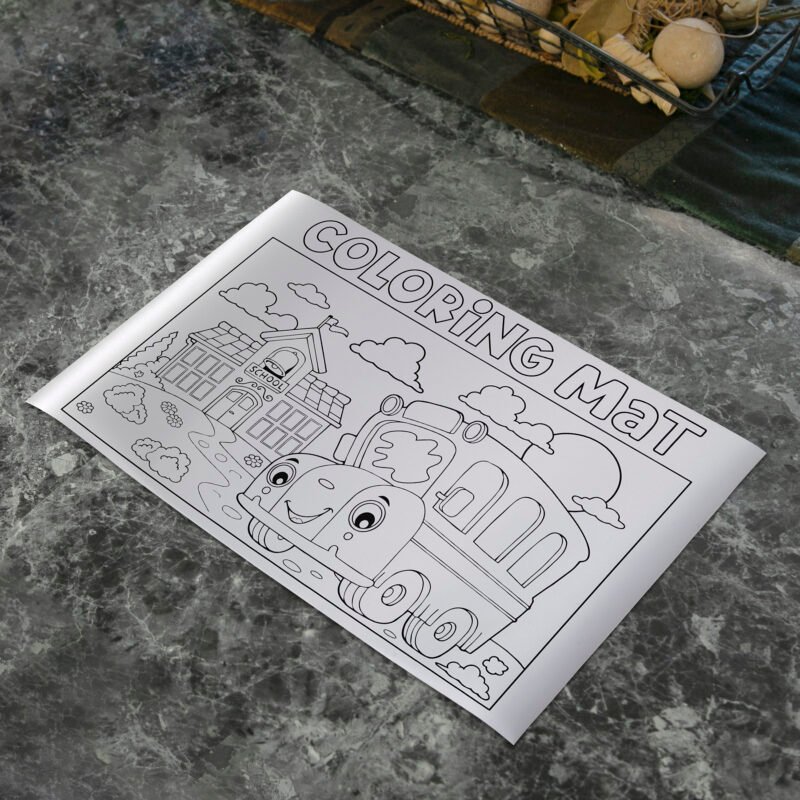 COLORiNG MaT
SCHOOL